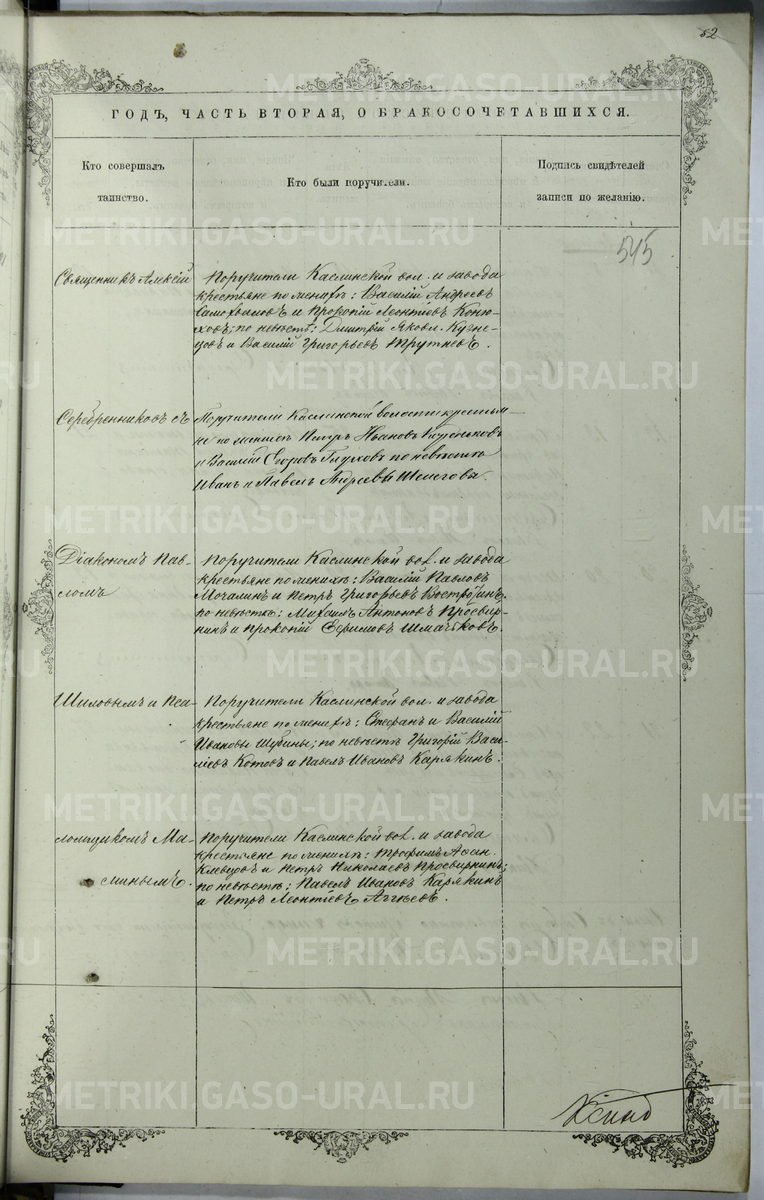 52
ГОДЪ, ЧАСТЬ ВТОРАЯ, О БРАКОСОЧЕТАВШИХСЯ.
Кто совершалъ таинство.
Кто были поручители.
Подпись свидѣтелей записи по желанію.
545
Священникъ Алексій
Поручители Каслинской вол. и завода
крестьяне по женихѣ: Василій Андреевъ
Самохваловъ и Прокопій Леонтіевъ Коню-
ховъ; по невѣстѣ: Дмитрій Яковл. Кузне-
цовъ и Василій Григорьевъ Трутневъ.
Серебренниковъ съ
Поручители Каслинской волости крестьян
не по женихѣ Петръ Ивановъ
и Василій Егоровъ Глуховъ по невѣстѣ
Иванъ и Павелъ Андреевы Шелеговы.
Діакономъ Пав-
ломъ
Поручители Каслинской вол. и завода
крестьяне по женихѣ: Василій Павловъ
Мочалинъ и Петръ Григорьевъ Востротинъ.
по невѣстѣ: Антоновъ Просвир-
нинъ и Прокопій Ефимовъ Шмачковъ.
Шиловымъ и Пса-
Поручители Каслинской вол. и завода
крестьяне по женихѣ: Стефанъ и Василій
Ивановы Шубины; по невѣстѣ Григорій Васи-
ліевъ Котовъ и Павелъ Ивановъ Карякинъ.
ломщикомъ Ма-
синымъ.
Поручители Каслинской вол. и завода
крестьяне по женихѣ: Трофимъ Афан.
Клевцовъ и Петръ Николаевъ Просвирнинъ;
по невѣстѣ: Павелъ Ивановъ Карякинъ
и Петръ Леонтіевъ Аггѣевъ.
METRIKI.GASO-URAL.RU